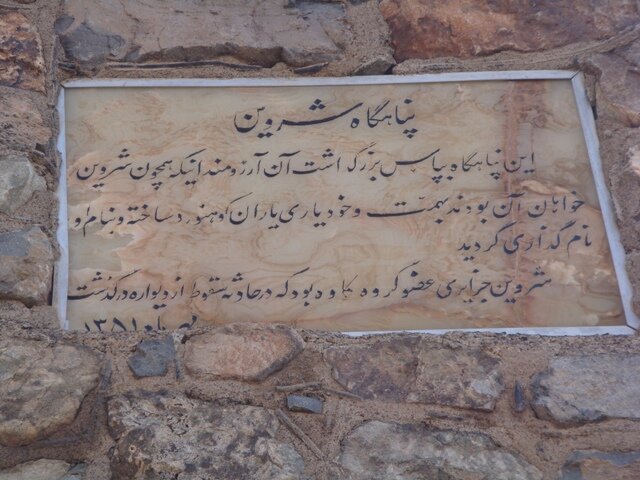 پناهگاه شروین
این پناهگاه بپاس بزرگداشت آن آرزومندانیکه همچون شروین
خواهان آن بودند بهمت و خودیاری یاران کوهنورد ساخته و بنام او
نام گذاری گردید
شروین جزایری عضو گروه کاوه بود که در حادثه سقوط از دیواره درگذشت
۱۳۵۱